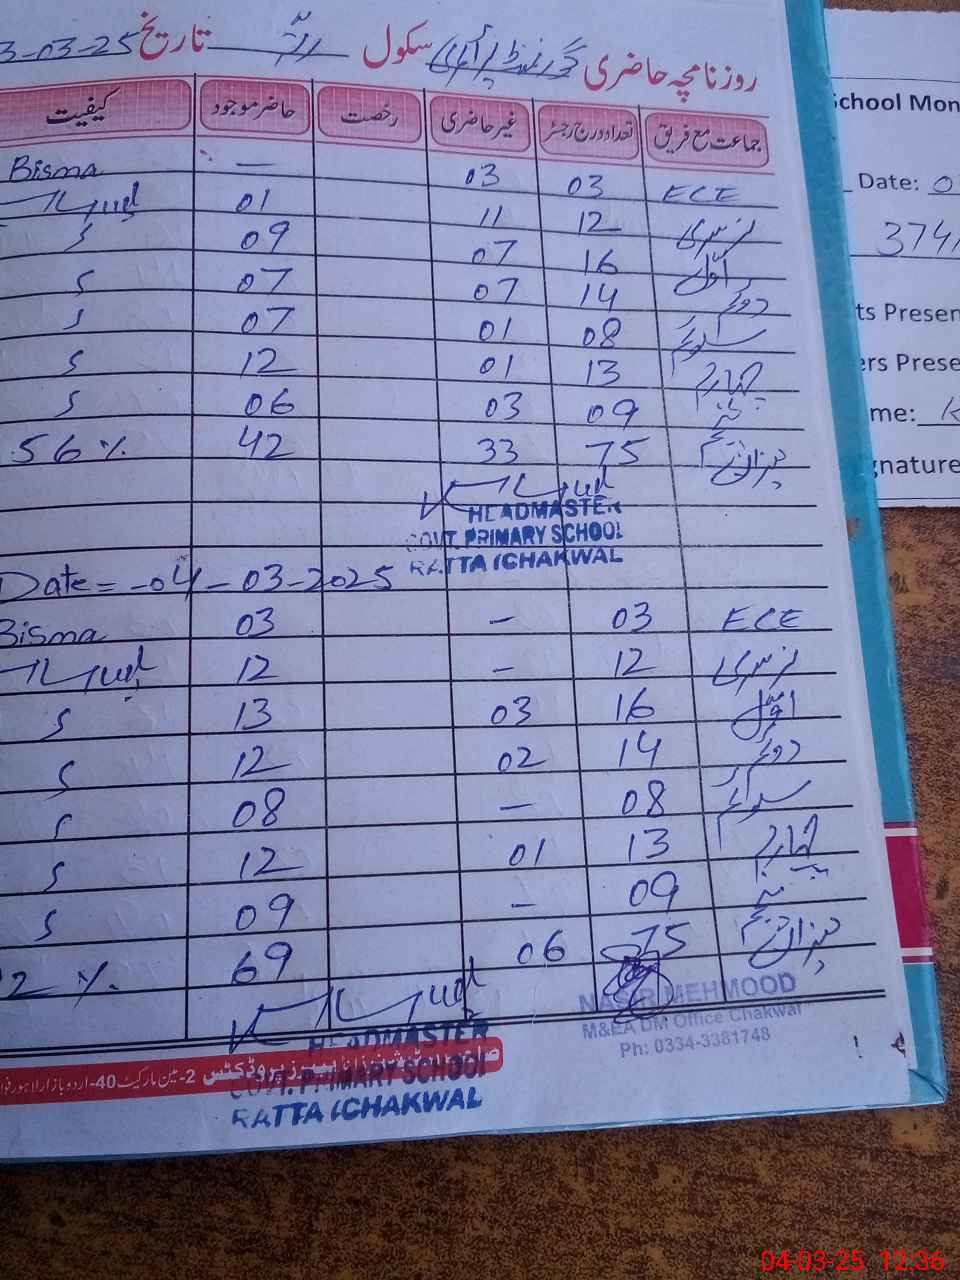 روزنامچہ حاضری گورنمنٹ پرائمری سکول رتہ تاریخ 3-03-25
جماعت مع فریق تعداد درج رجسٹر غیر حاضری رخصت حاضر موجود کیفیت
ECE 03 03 — Bisma
نرسری 12 11 01
اوّل 16 07 09 ؍
دوئم 14 07 07 ؍
سوئم 08 01 07 ؍
چہارم 13 01 12 ؍
پنجم 09 03 06 ؍
میزان 75 33 42 56 %
HEADMASTER
GOVT. PRIMARY SCHOOL
RATTA (CHAKWAL
Date = -04-03-2025
ECE 03 - 03 Bisma
نرسری 12 - 12
اوّل 16 03 13 ؍
دوئم 14 02 12 ؍
سوئم 08 - 08 ؍
چہارم 13 01 12 ؍
پنجم 09 - 09 ؍
میزان 75 06 69 2 %
HEADMASTER
GOVT. PRIMARY SCHOOL
RATTA (CHAKWAL
NASIR MEHMOOD
M&EA DM Office Chakwal
Ph: 0334-3381748
پروڈکٹس 2-مین مارکیٹ 40-اردو بازار لاہور
School Mon
Date: 0
374
ts Presen
ers Prese
me:
gnature
04-03-25 12:36